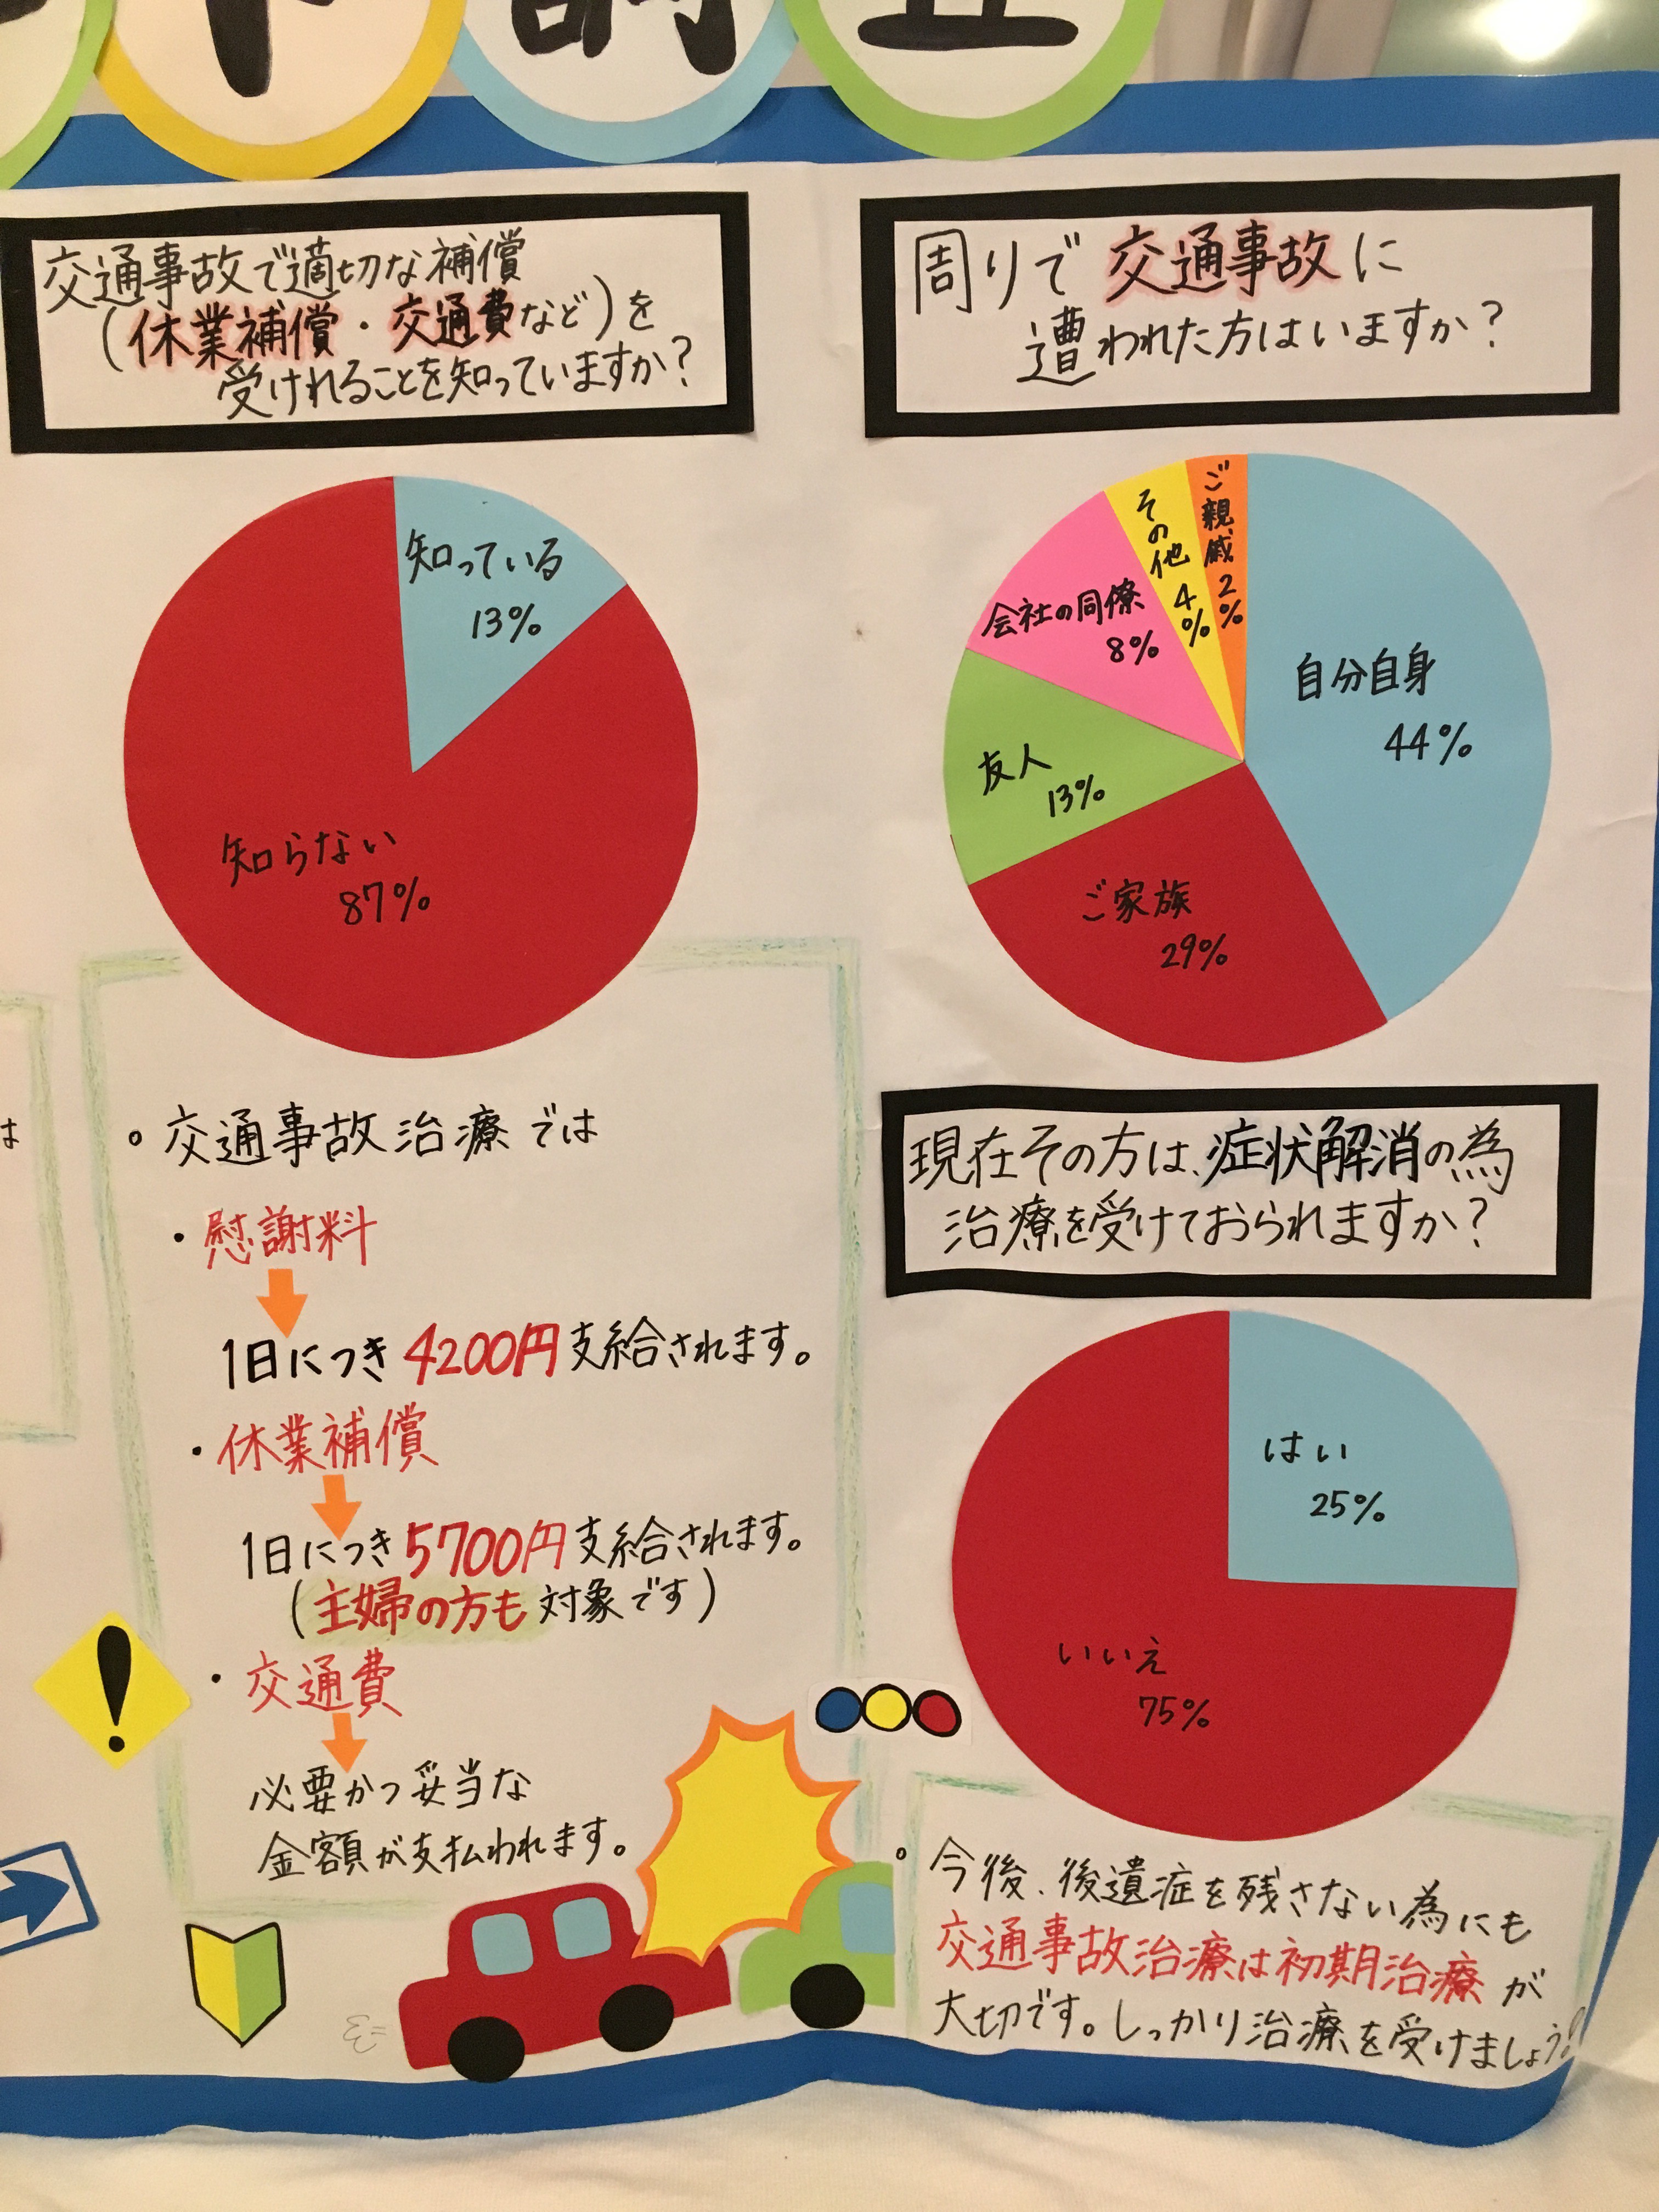 ト調査
交通事故で適切な補償
(休業補償・交通費など)を
受けれることを知っていますか?
知っている
13%
知らない
87%
は
。交通事故治療では
・慰謝料
1日につき4200円支給されます。
・休業補償
1日につき5700円支給されます。
(主婦の方も対象です)
・交通費
必要かつ妥当な
金額が支払われます。
!
周りで交通事故に
遭われた方はいますか?
自分自身
44%
ご家族
29%
友人
13%
会社の同僚
8%
その他4%
ご親戚2%
現在その方は、症状解消の為
治療を受けておられますか?
はい
25%
いいえ
75%
。今後、後遺症を残さない為にも
交通事故治療は初期治療が
大切です。しっかり治療を受けましょう!